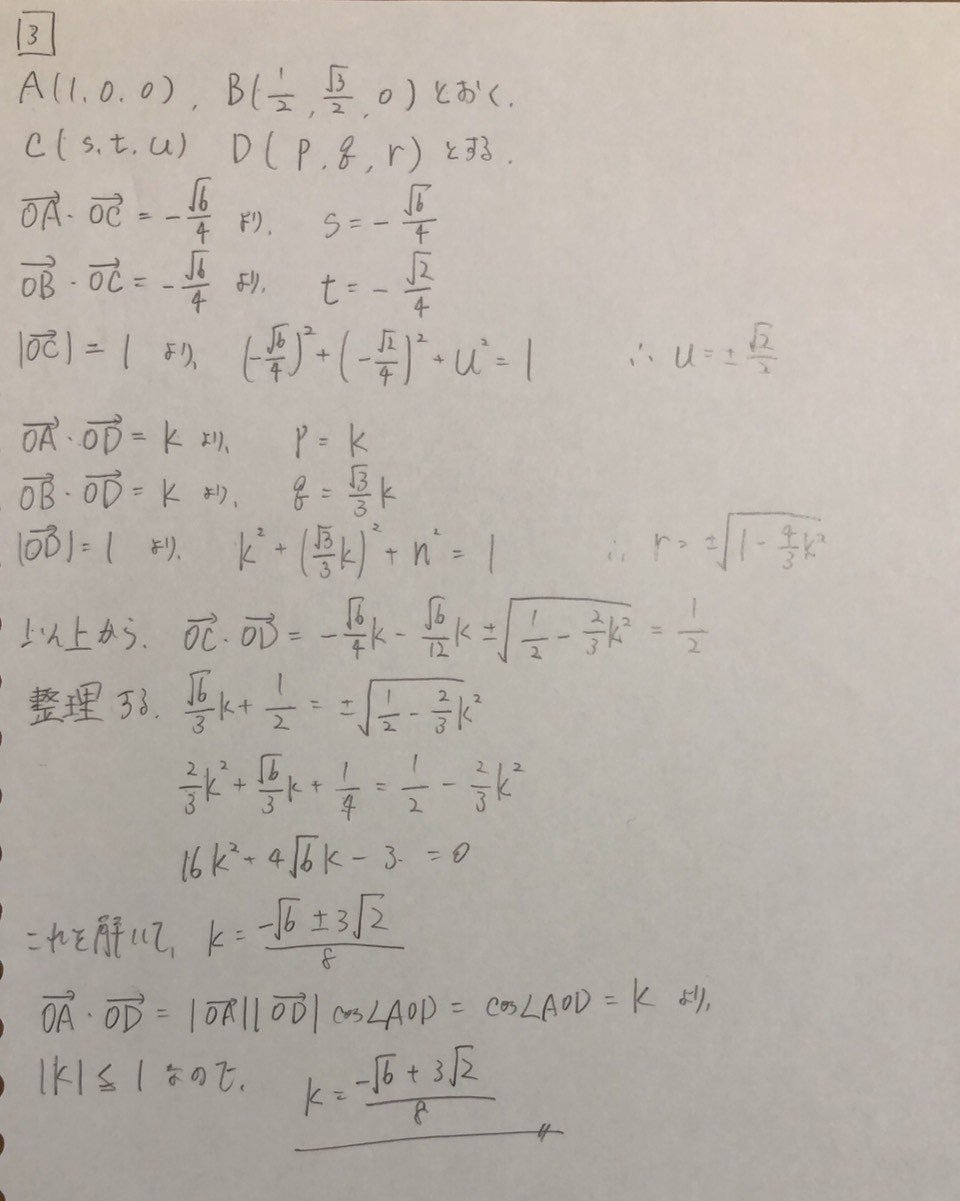 3
A(1,0,0), B(1/2, √3/2, 0) とおく.
C(s,t,u) D(p,q,r) とする.
→OA・→OC = -√6/4 より, s = -√6/4
→OB・→OC = -√6/4 より, t = -√2/4
|→OC| = 1 より, (-√6/4)² + (-√2/4)² + u² = 1 ∴ u = ±√2/2
→OA・→OD = k より, p = k
→OB・→OD = k より, q = √3/3 k
|→OD| = 1 より, k² + (√3/3 k)² + n² = 1 ∴ r = ±√(1 - 4/3 k²)
以上から, →OC・→OD = -√6/4 k - √6/12 k ± √(1/2 - 2/3 k²) = 1/2
整理する. √6/3 k + 1/2 = ±√(1/2 - 2/3 k²)
2/3 k² + √6/3 k + 1/4 = 1/2 - 2/3 k²
16k² + 4√6 k - 3 = 0
これを解いて, k = (-√6 ± 3√2)/8
→OA・→OD = |→OA||→OD| cos∠AOD = cos∠AOD = k より,
|k| ≦ 1 なので, k = (-√6 + 3√2)/8